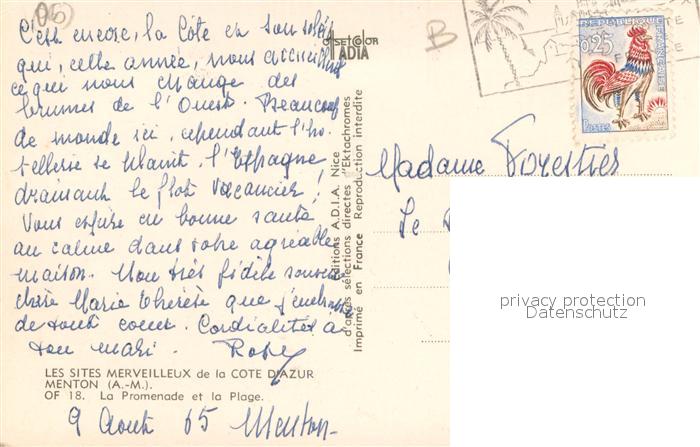 (06)
C'est encore, la Côte et son soleil
qui, cette année, nous accueillent
ce qui nous change des
brumes de l'Ouest. Beaucoup
de monde ici, cependant l'hô-
tellerie se plaint, l'Espagne
drainant le flot vacancier!
Vous espère en bonne santé
au calme dans votre agréable
maison. Mon très fidèle souvenir
chère Marie Thérèse que j'embrasse
de tout coeur. Cordialités à
ton mari.
LES SITES MERVEILLEUX de la COTE D'AZUR
MENTON (A.-M.).
OF 18. La Promenade et la Plage.
9 Août 65 Menton-
OFFSETCOLOR
ADIA
Editions A.D.I.A. Nice
d'après sélections directes "Ektachromes
Imprimé en France Reproduction interdite
B
REPUBLIQUE FRANÇAISE
0,25
POSTES
Madame Forestier
Le
privacy protection
Datenschutz